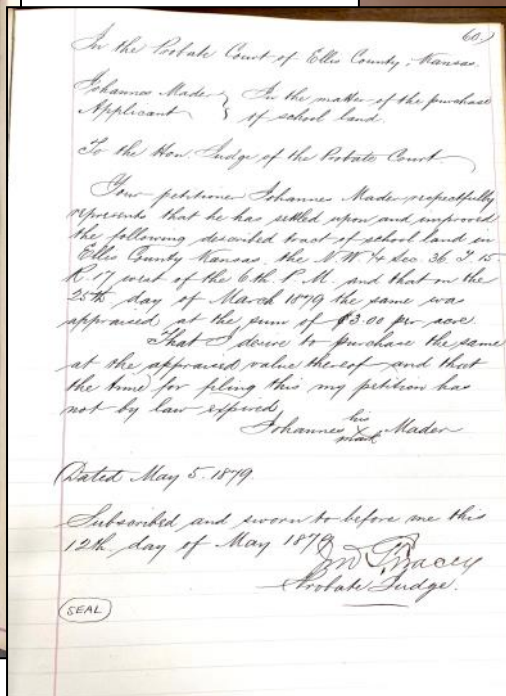 60)
In the Probate Court of Ellis County, Kansas.
Johannes Mader } In the matter of the purchase
Applicant } of school land.
To the Hon. Judge of the Probate Court
Your petitioner Johannes Mader respectfully
represents that he has settled upon and improved
the following described tract of school land in
Ellis County Kansas. the N W 1/4 Sec. 36 T 15
R. 17 west of the 6th. P. M. and that on the
25th day of March 1879 the same was
appraised at the sum of $3.00 per acre.
That I desire to purchase the same
at the appraised value thereof and that
the time for filing this my petition has
not by law expired
Johannes his mark Mader
Dated May 5. 1879.
Subscribed and sworn to before me this
12th day of May 1879
Tracey
Probate Judge.
SEAL